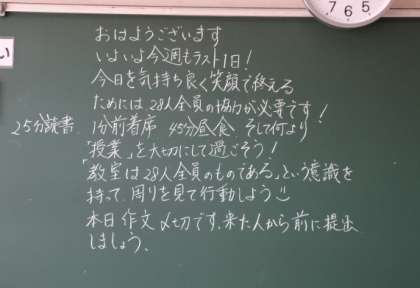 おはようございます
いよいよ今週もラスト1日!
今日を気持ち良く笑顔で終える
ためには28人全員の協力が必要です!
25分読書 1分前着席 45分昼食 そして何より
「授業」を大切にして過ごそう!
「教室は28人全員のものである」という意識を
持って、周りを見て行動しよう
本日作文〆切です。来た人から前に提出
しましょう。
い
7 6 5